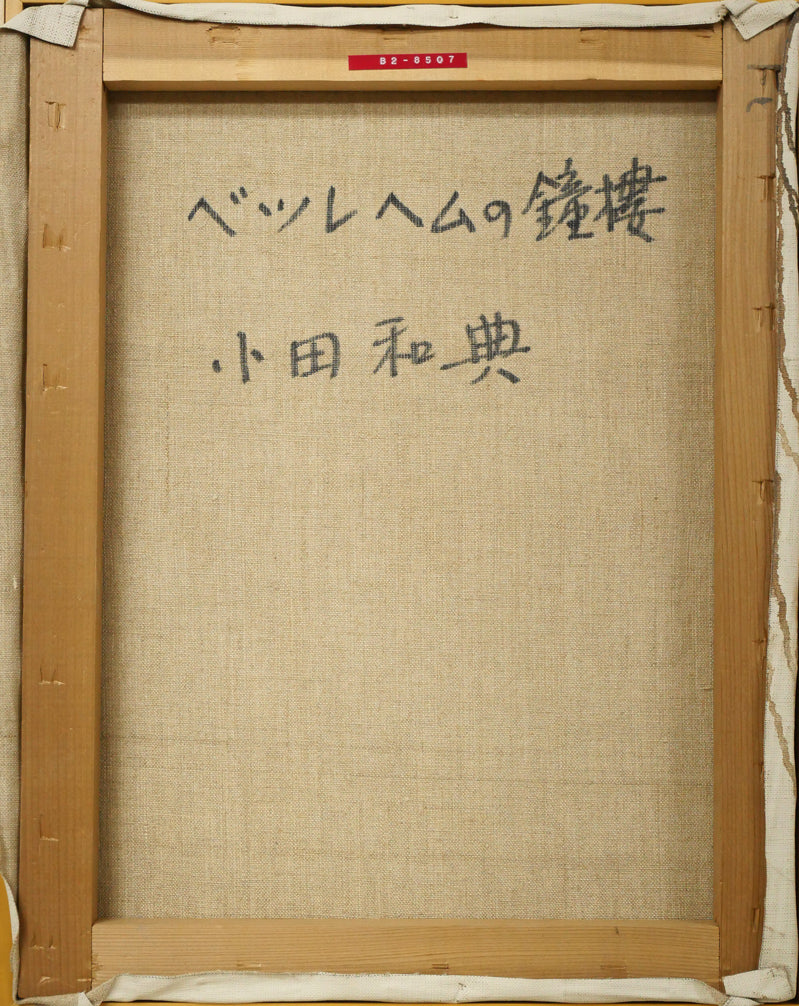 B2-8507
ベツレヘムの鐘樓
小田和典